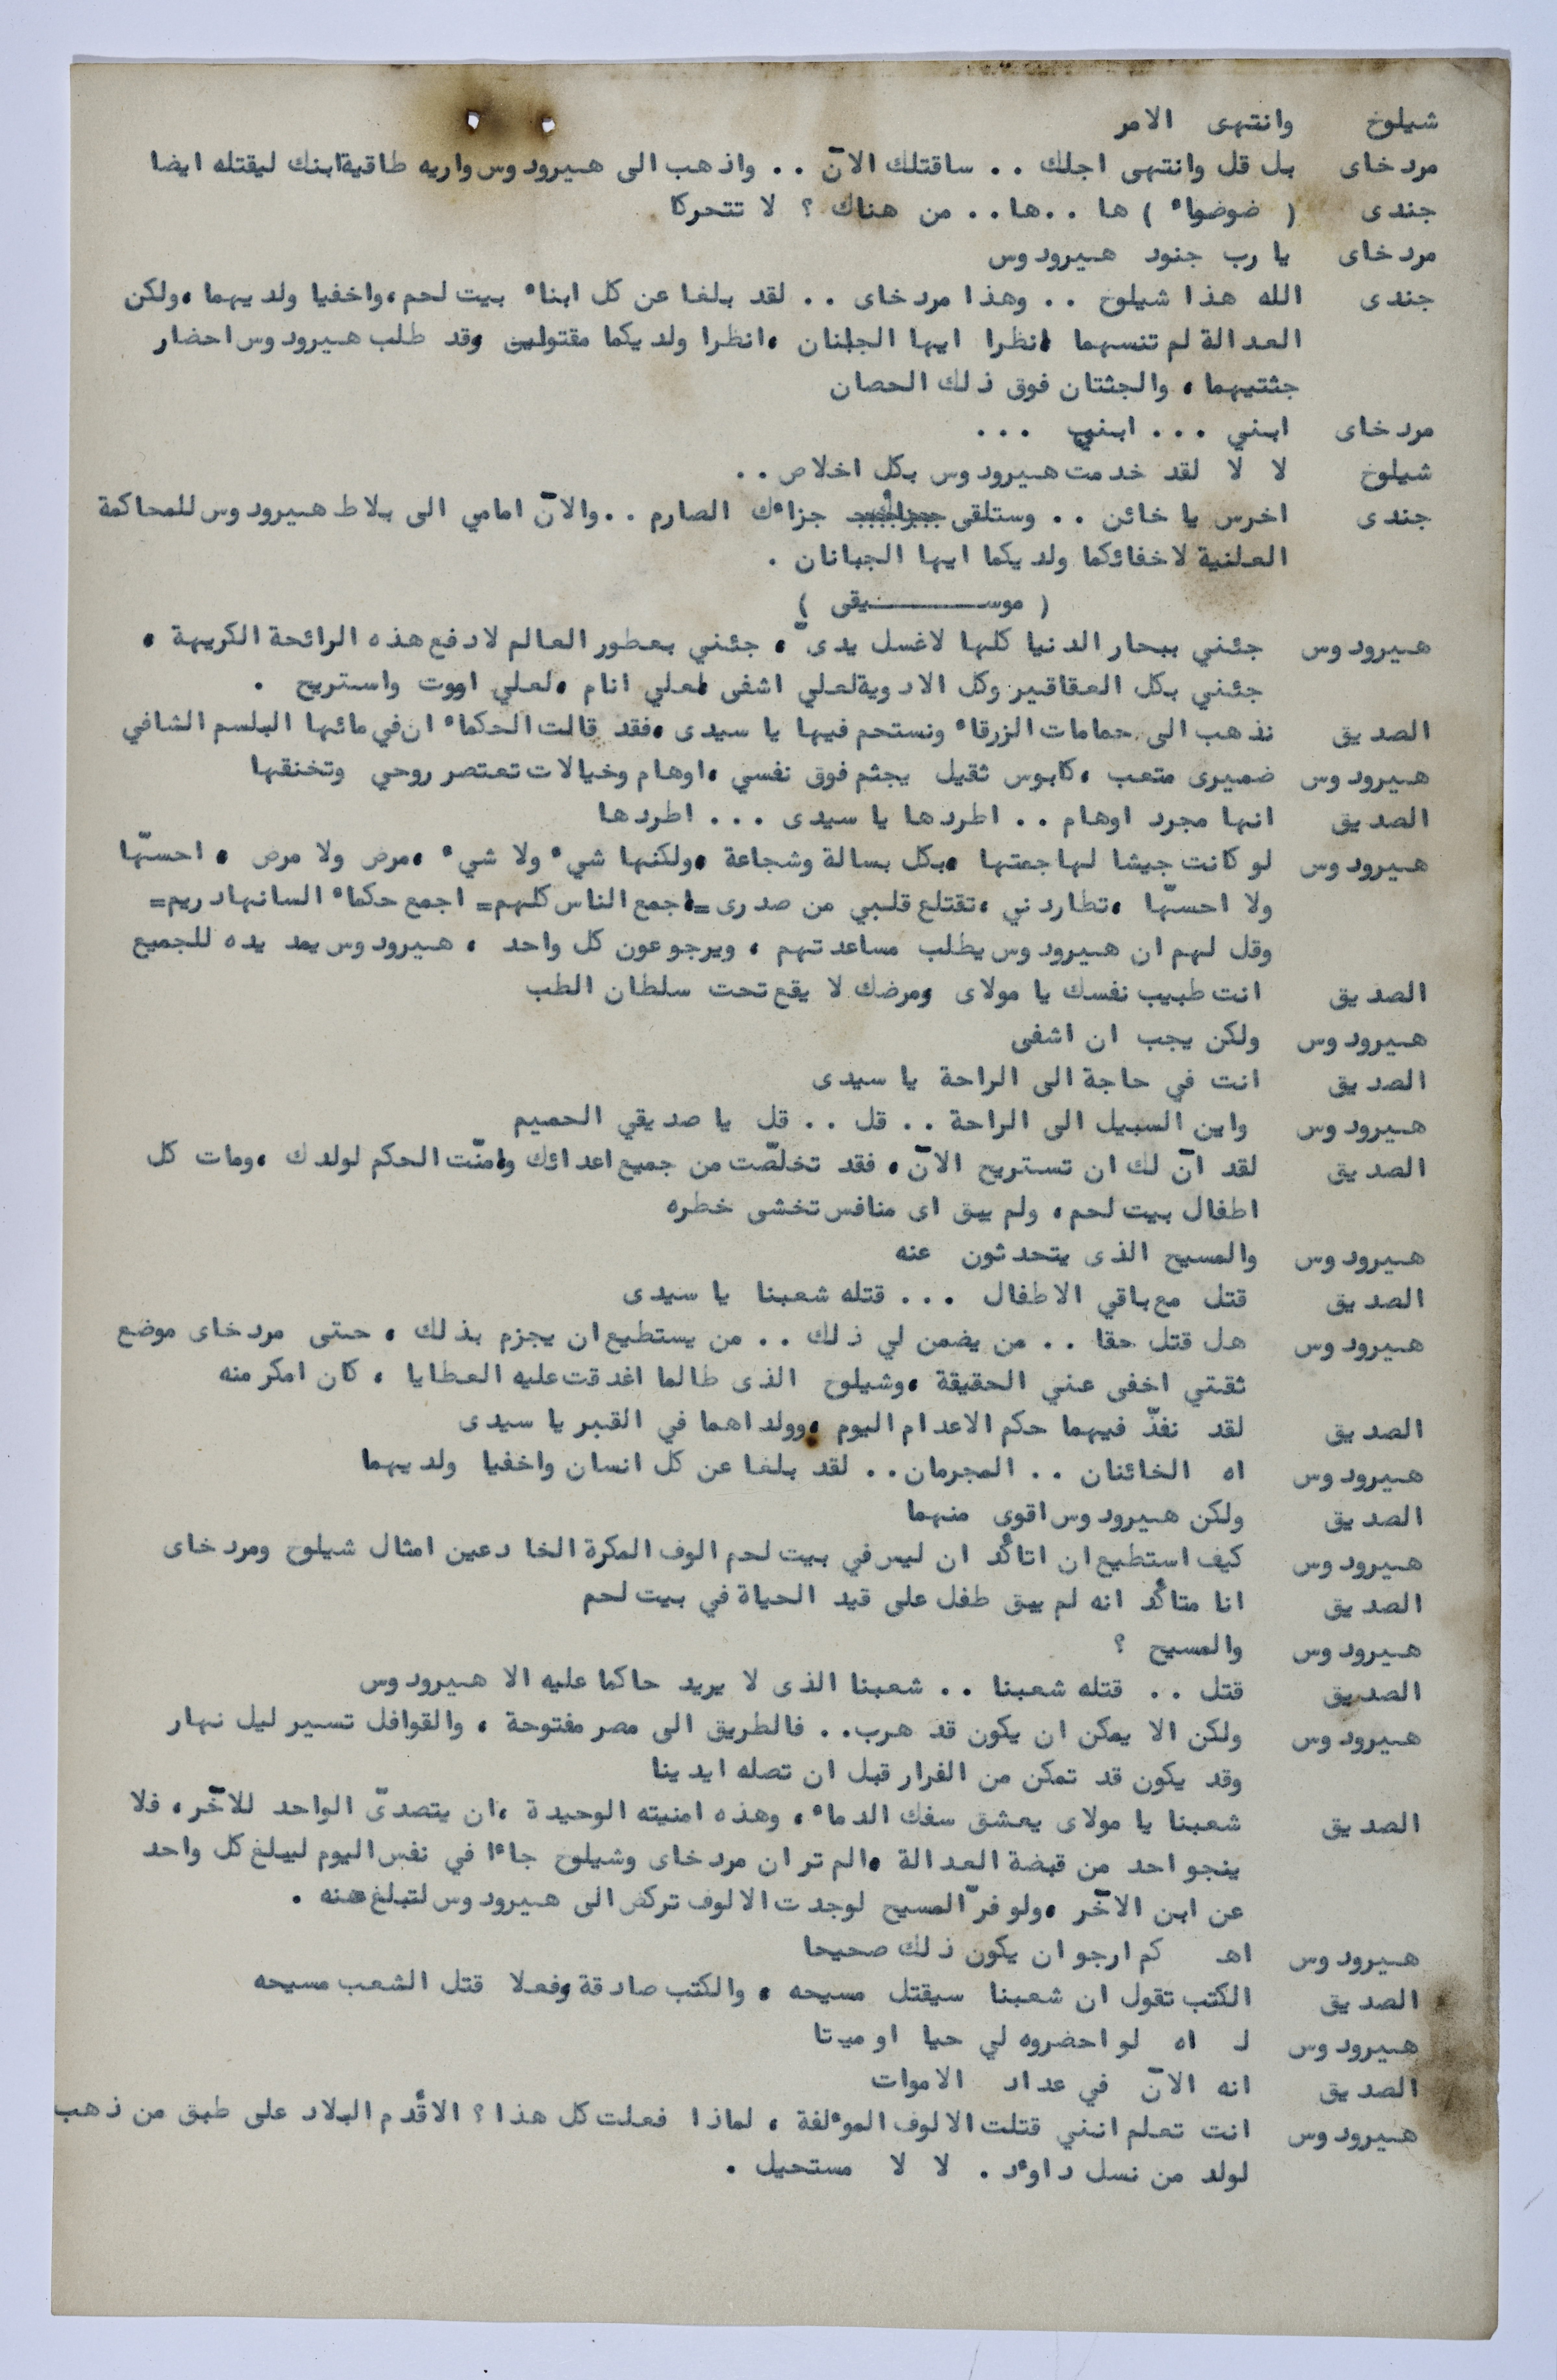 شيلوخ وانتهى الامر
مردخاى بل قل وانتهى اجلك .. ساقتلك الآن .. واذهب الى هيرودوس واريه طاقية ابنك ليقتله ايضا
جندى ( ضوضاء ) ها ..ها.. من هناك ؟ لا تتحركا
مردخاى يا رب جنود هيرودوس
جندى الله هذا شيلوخ .. وهذا مردخاى .. لقد بلغا عن كل ابناء بيت لحم، واخفيا ولديهما ،ولكن
العدالة لم تنسهما انظرا ايها الجبنان ،انظرا ولديكما مقتولين وقد طلب هيرودوس احضار
جثتيهما ، والجثتان فوق ذلك الحصان
مردخاى ابني ... ابني ...
شيلوخ لا لا لقد خدمت هيرودوس بكل اخلاص ..
جندى اخرس يا خائن .. وستلقى جزاءك الصارم ..والآن امامي الى بلاط هيرودوس للمحاكمة
العلنية لاخفائكما ولديكما ايها الجبانان .
( موسـيقى )
هيرودوس جئني ببحار الدنيا كلها لاغسل يدىّ ، جئني بعطور العالم لادفع هذه الرائحة الكريهة ،
جئني بكل العقاقير وكل الادوية لعلي اشفى لعلي انام ،لعلي اموت واستريح .
الصديق نذهب الى حمامات الزرقاء ونستحم فيها يا سيدى ،فقد قالت الحكماء ان في مائها البلسم الشافي
هيرودوس ضميرى متعب ،كابوس ثقيل يجثم فوق نفسي ،اوهام وخيالات تعتصر روحي وتخنقها
الصديق انها مجرد اوهام .. اطردها يا سيدى ... اطردها
هيرودوس لو كانت جيشا لهاجمتها ،بكل بسالة وشجاعة ،ولكنها شيء ولا شيء ،مرض ولا مرض ، احسّها
ولا احسّها ،تطاردني ،تقتلع قلبي من صدرى =اجمع الناس كلهم= اجمع حكماء السانهادريم=
وقل لهم ان هيرودوس يطلب مساعدتهم ، ويرجو عون كل واحد ، هيرودوس يمد يده للجميع
الصديق انت طبيب نفسك يا مولاى ومرضك لا يقع تحت سلطان الطب
هيرودوس ولكن يجب ان اشفى
الصديق انت في حاجة الى الراحة يا سيدى
هيرودوس واين السبيل الى الراحة .. قل .. قل يا صديقي الحميم
الصديق لقد آن لك ان تستريح الآن ، فقد تخلصّت من جميع اعدائك وامنّت الحكم لولدك ،ومات كل
اطفال بيت لحم ، ولم يبق اى منافس تخشى خطره
هيرودوس والمسيح الذى يتحدثون عنه
الصديق قتل مع باقي الاطفال ... قتله شعبنا يا سيدى
هيرودوس هل قتل حقا .. من يضمن لي ذلك .. من يستطيع ان يجزم بذلك ، حتى مردخاى موضع
ثقتي اخفى عني الحقيقة ،وشيلوح الذى طالما اغدقت عليه العطايا ، كان امكر منه
الصديق لقد نفذّ فيهما حكم الاعدام اليوم ،وولداهما في القبر يا سيدى
هيرودوس اه الخائنان .. المجرمان.. لقد بلغا عن كل انسان واخفيا ولديهما
الصديق ولكن هيرودوس اقوى منهما
هيرودوس كيف استطيع ان اتأكد ان ليس في بيت لحم الوف المكرة الخادعين امثال شيلوح ومردخاى
الصديق انا متأكد انه لم يبق طفل على قيد الحياة في بيت لحم
هيرودوس والمسيح ؟
الصديق قتل .. قتله شعبنا .. شعبنا الذى لا يريد حاكما عليه الا هيرودوس
هيرودوس ولكن الا يمكن ان يكون قد هرب.. فالطريق الى مصر مفتوحة ، والقوافل تسير ليل نهار
وقد يكون قد تمكن من الفرار قبل ان تصله ايدينا
الصديق شعبنا يا مولاى يعشق سفك الدماء ، وهذه امنيته الوحيدة ،ان يتصدىّ الواحد للآخر ، فلا
ينجو احد من قبضة العدالة ،الم تر ان مردخاى وشيلوح جاءا في نفس اليوم ليبلغ كل واحد
عن ابن الآخر ،ولو فرّ المسيح لوجدت الالوف تركض الى هيرودوس لتبلغ عنه .
هيرودوس اهـ كم ارجو ان يكون ذلك صحيحا
الصديق الكتب تقول ان شعبنا سيقتل مسيحه ، والكتب صادقة وفعلا قتل الشعب مسيحه
هيرودوس لـ اه لو احضروه لي حيا او ميتا
الصديق انه الآن في عداد الاموات
هيرودوس انت تعلم انني قتلت الالوف المؤلفة ، لماذا فعلت كل هذا ؟ الأقدم البلاد على طبق من ذهب
لولد من نسل داوءد . لا لا مستحيل .